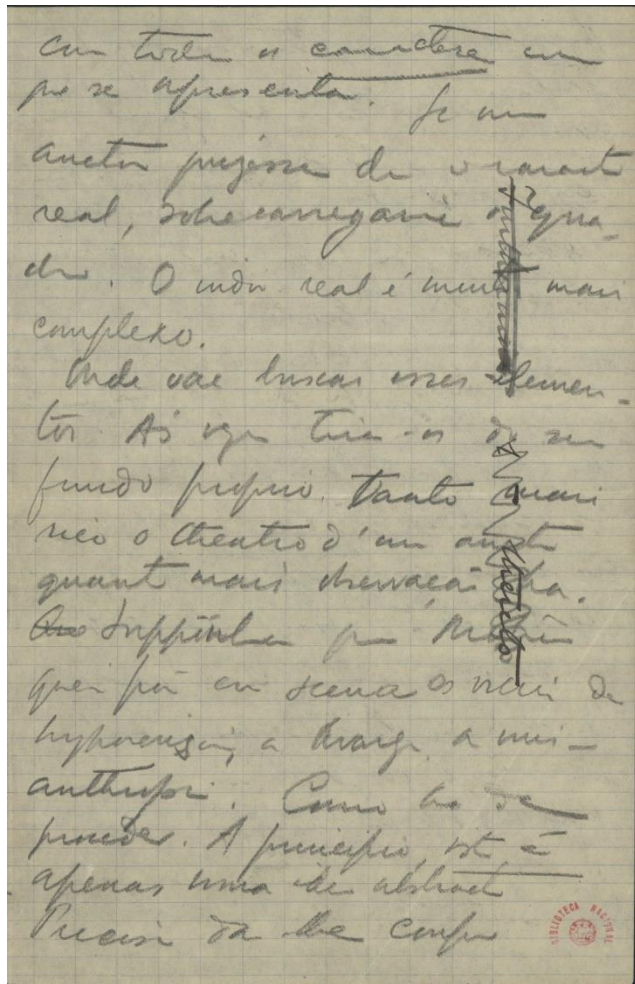 com todos os caracteres com
que se apresenta. Se um
auctor puzesse de o caracter
real, sobrecarregaria o qua-
dro. O indiv real é muito mais
complexo.
Onde vae buscar esses elemen-
tos. Ás vezes tira-os de seu
fundo proprio. Tanto mais
rico o theatro d'um auctor
quanto mais observação ha.
Supponha que Molière
quer pôr em scena os vicios da
hypocrisia, a avareza, a mis-
anthropia. Como ha de
proceder. A principio, isto é
apenas uma idea abstracta
Precisa da lhe corpo
BIBLIOTECA NACIONAL